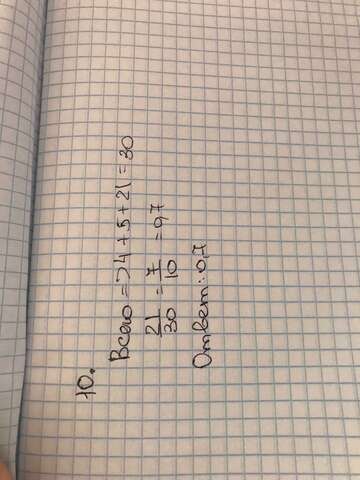 10.
Всего => 4 + 5 + 21 = 30
21/30 = 7/10 = 0,7
Ответ: 0,7